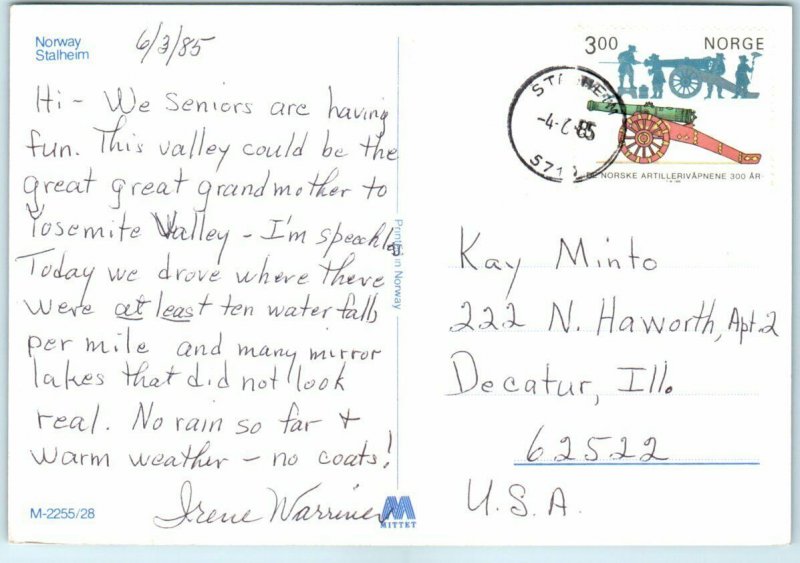 Norway
Stalheim
6/3/85
Hi - We Seniors are having
fun. This valley could be the
great great grandmother to
Yosemite Valley - I'm speechles
Today we drove where there
were at least ten water falls
per mile and many mirror
lakes that did not look
real. No rain so far +
warm weather - no coats!
Irene Warriner
M-2255/28
MITTET
Printed in Norway
3.00 NORGE
-4-6 85
571
DE NORSKE ARTILLERIVÅPNENE 300 ÅR
Kay Minto
222 N. Haworth, Apt. 2
Decatur, Ill.
62522
U.S.A.